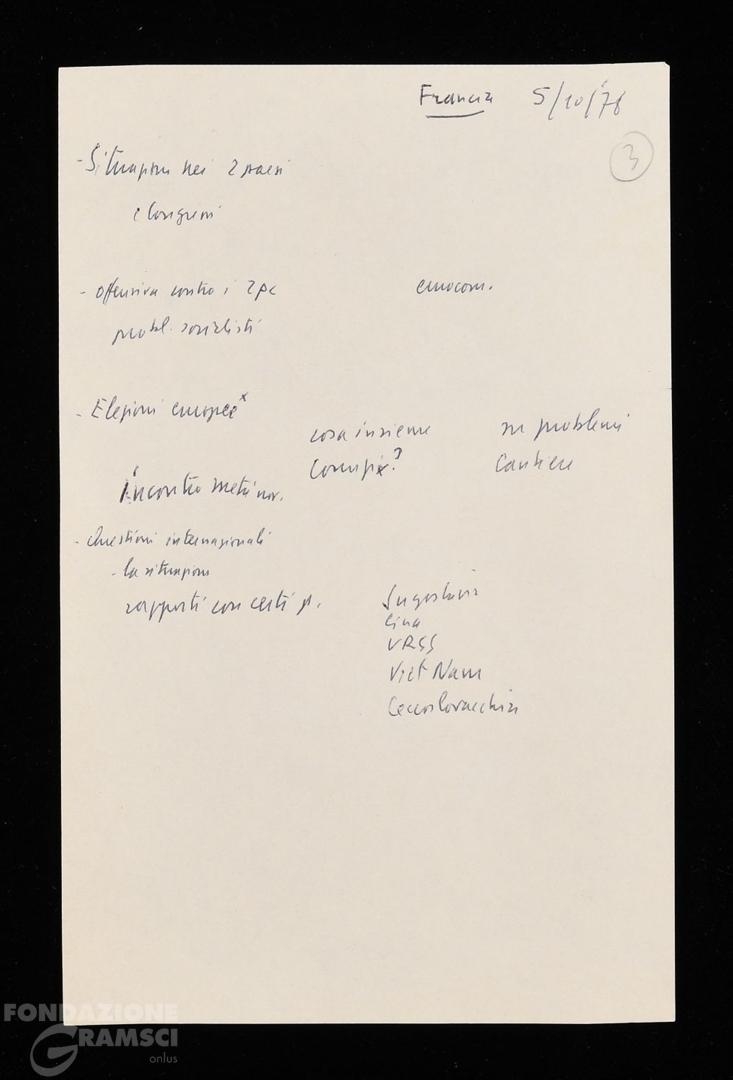 Francia 5/10/78
3
- Situazioni nei 2 paesi
e Congressi
- Offensiva contro i 2 pc eurocom.
probl. socialisti
- Elezioni europee x
cosa insieme su problemi
Comuni? Cantiere
Incontro metà nov.
- Questioni internazionali
- La situazione
rapporti con certi p. Jugoslavia
Cina
URSS
Viet Nam
Cecoslovacchia
FONDAZIONE
GRAMSCI
onlus